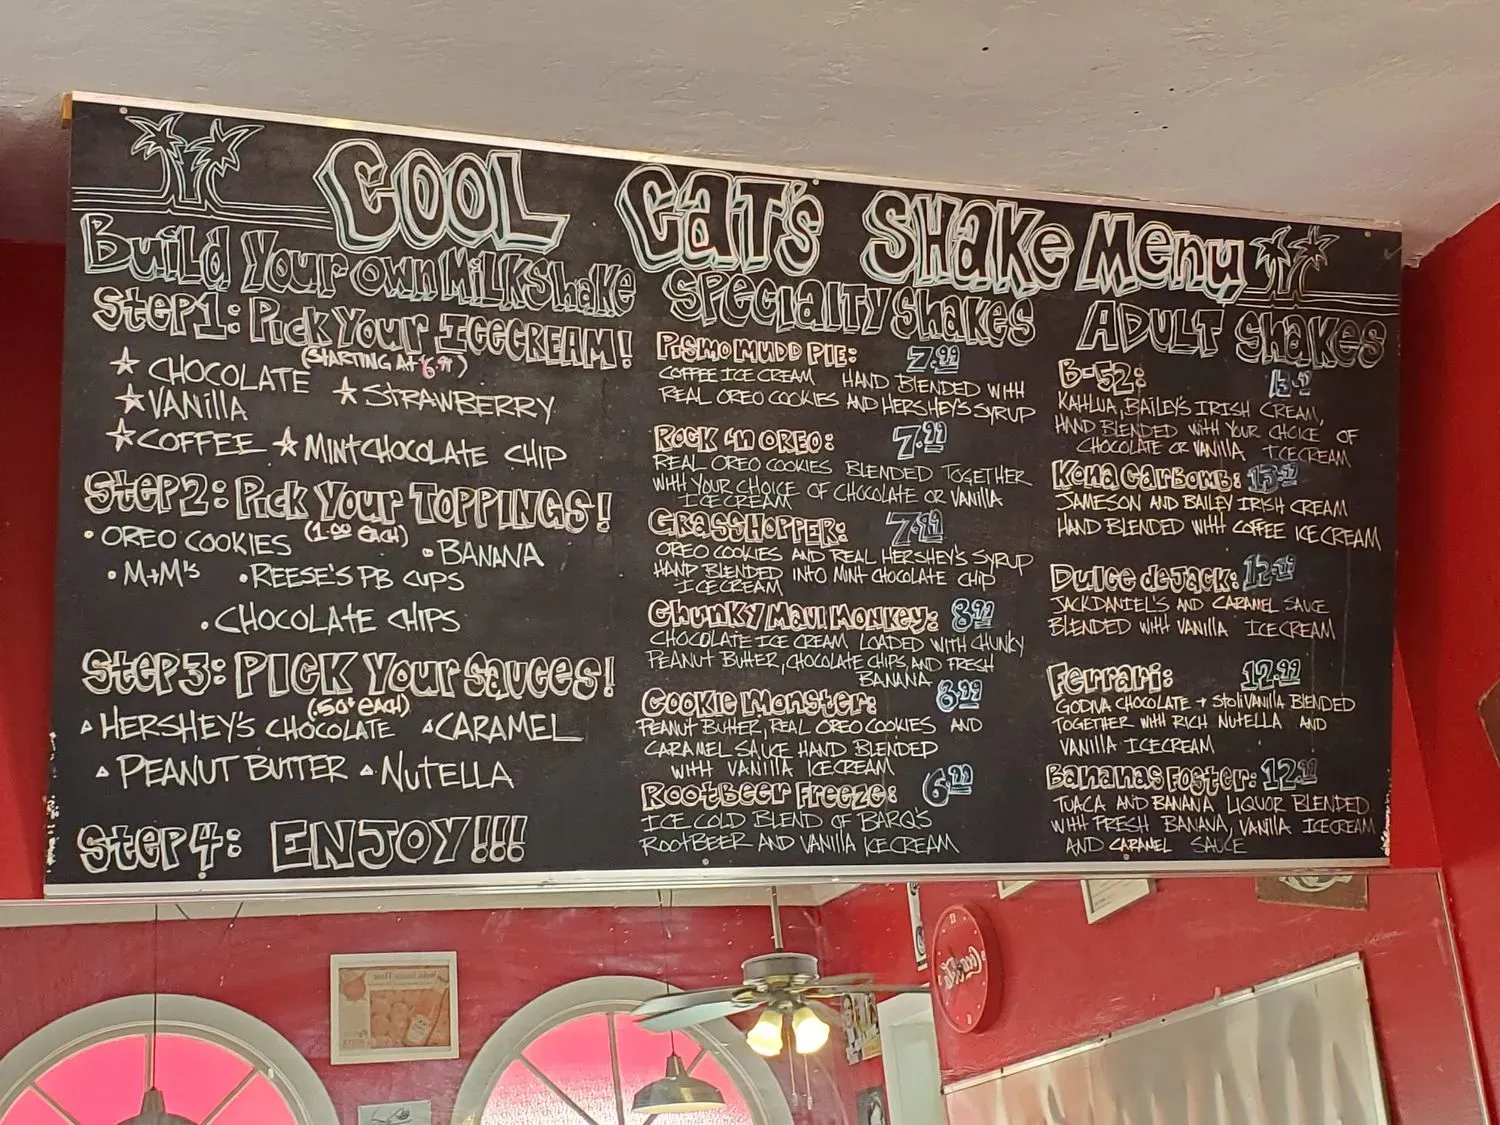 COOL CAT'S SHAKE MENU
Build Your Own Milkshake
Step1: Pick Your Icecream!
(STARTING AT 6.99)
★ CHOCOLATE
★ STRAWBERRY
★ VANILLA
★ COFFEE ★ MINT CHOCOLATE CHIP
Step2: Pick Your TOPPINGS!
(1.00 EACH)
• OREO COOKIES
• BANANA
• M+M's • REESE'S PB CUPS
• CHOCOLATE CHIPS
Step3: PICK Your Sauces!
(.50¢ EACH)
▵ HERSHEY'S CHOCOLATE ▵ CARAMEL
▵ PEANUT BUTTER ▵ NUTELLA
Step4: ENJOY!!!
SPECIALTY SHAKES
PISMO MUDD PIE: 7.99
COFFEE ICE CREAM HAND BLENDED WITH
REAL OREO COOKIES AND HERSHEY'S SYRUP
ROCK 'N OREO: 7.99
REAL OREO COOKIES BLENDED TOGETHER
WITH YOUR CHOICE OF CHOCOLATE OR VANILLA
ICECREAM
GRASSHOPPER: 7.99
OREO COOKIES AND REAL HERSHEY'S SYRUP
HAND BLENDED INTO MINT CHOCOLATE CHIP
ICECREAM
Chunky Maui Monkey: 8.99
CHOCOLATE ICE CREAM LOADED WITH CHUNKY
PEANUT BUTTER, CHOCOLATE CHIPS AND FRESH
BANANA
Cookie Monster: 8.99
PEANUT BUTTER, REAL OREO COOKIES AND
CARAMEL SAUCE HAND BLENDED
WITH VANILLA ICECREAM
Rootbeer Freeze: 6.99
ICE COLD BLEND OF BARQ'S
ROOTBEER AND VANILLA ICECREAM
ADULT SHAKES
B-52:
KAHLUA, BAILEY'S IRISH CREAM,
HAND BLENDED WITH YOUR CHOICE OF
CHOCOLATE OR VANILLA ICECREAM
Kona Carbomb: 13.99
JAMESON AND BAILEY IRISH CREAM
HAND BLENDED WITH COFFEE ICE CREAM
Dulce de Jack: 12.99
JACK DANIEL'S AND CARAMEL SAUCE
BLENDED WITH VANILLA ICECREAM
Ferrari: 12.99
GODIVA CHOCOLATE + STOLI VANILLA BLENDED
TOGETHER WITH RICH NUTELLA AND
VANILLA ICECREAM
Bananas Foster: 12.99
TUACA AND BANANA LIQUOR BLENDED
WITH FRESH BANANA, VANILLA ICECREAM
AND CARAMEL SAUCE
Coca-Cola